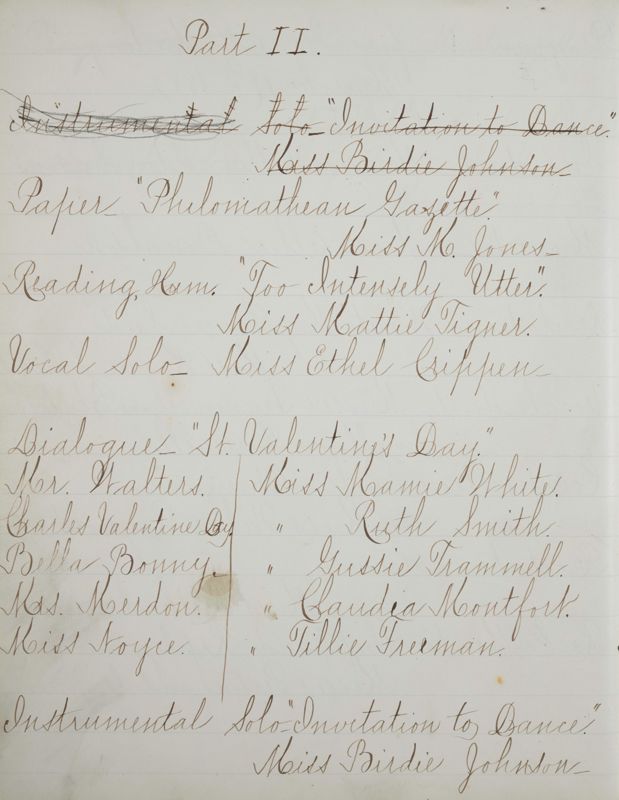 Part II.
Instrumental Solo_ "Invitation to Dance."
Miss Birdie Johnson_
Paper_ "Philomathean Gazette".
Miss M. Jones_
Reading, Hum. "Too Intensely Utter".
Miss Mattie Tigner.
Vocal Solo_ Miss Ethel Crippen_
Dialogue_ "St. Valentine's Day."
Mr. Walters. Miss Mamie White.
Charles Valentine Day " Ruth Smith.
Bella Bonny. " Gussie Trammell.
Mrs. Merdon. " Claudia Montfort.
Miss Noyce. " Tillie Freeman.
Instrumental Solo_ "Invitation to Dance."
Miss Birdie Johnson_